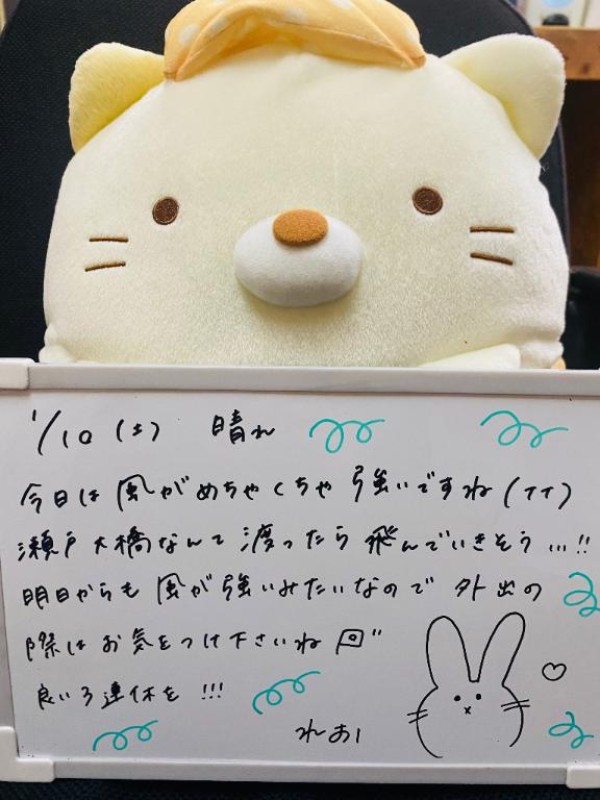 1/10 (土) 晴れ
今日は風がめちゃくちゃ強いですね(TT)
瀬戸大橋なんて渡ったら飛んでいきそう...!!
明日からも風が強いみたいなので外出の
際はお気をつけ下さいね
良い3連休を!!!
れお